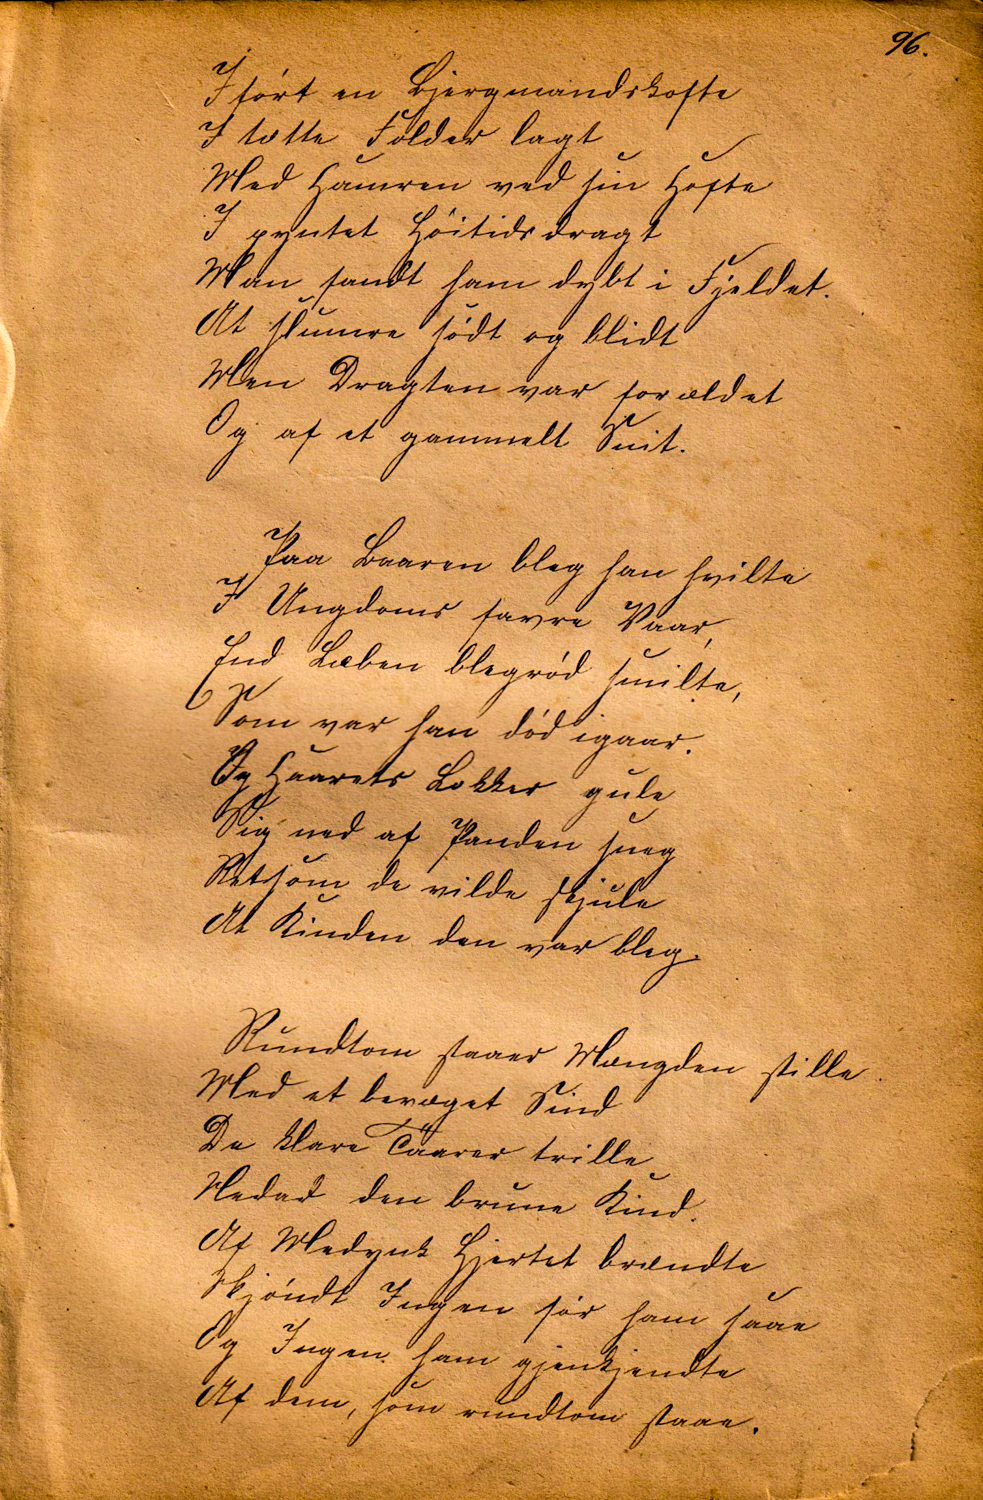 96.
Iført en Bjergmandskofte
I tætte Folder lagt
Med Hamren ved sin Hofte
I pyntet Høitidsdragt
Man fandt ham dybt i Fjeldet.
At slumre sødt og blidt
Men Dragten var forældet
Og af et gammelt Snit.
Paa Baaren bleg han hvilte
I Ungdoms favre Vaar,
End Læben blegrød smilte,
Som var han død igaar.
Og Haarets Lokker gule
Sig ned af Panden sneg
Retsom de vilde skjule
At Kinden den var bleg.
Rundtom staaer Mængden stille
Med et bevæget Sind
De klare Taarer trille
Nedad den brune Kind.
Af Medynk Hjertet brændte
Skjøndt Ingen før ham saae
Og Ingen ham gjenkjendte
Af dem, som rundtom staae.